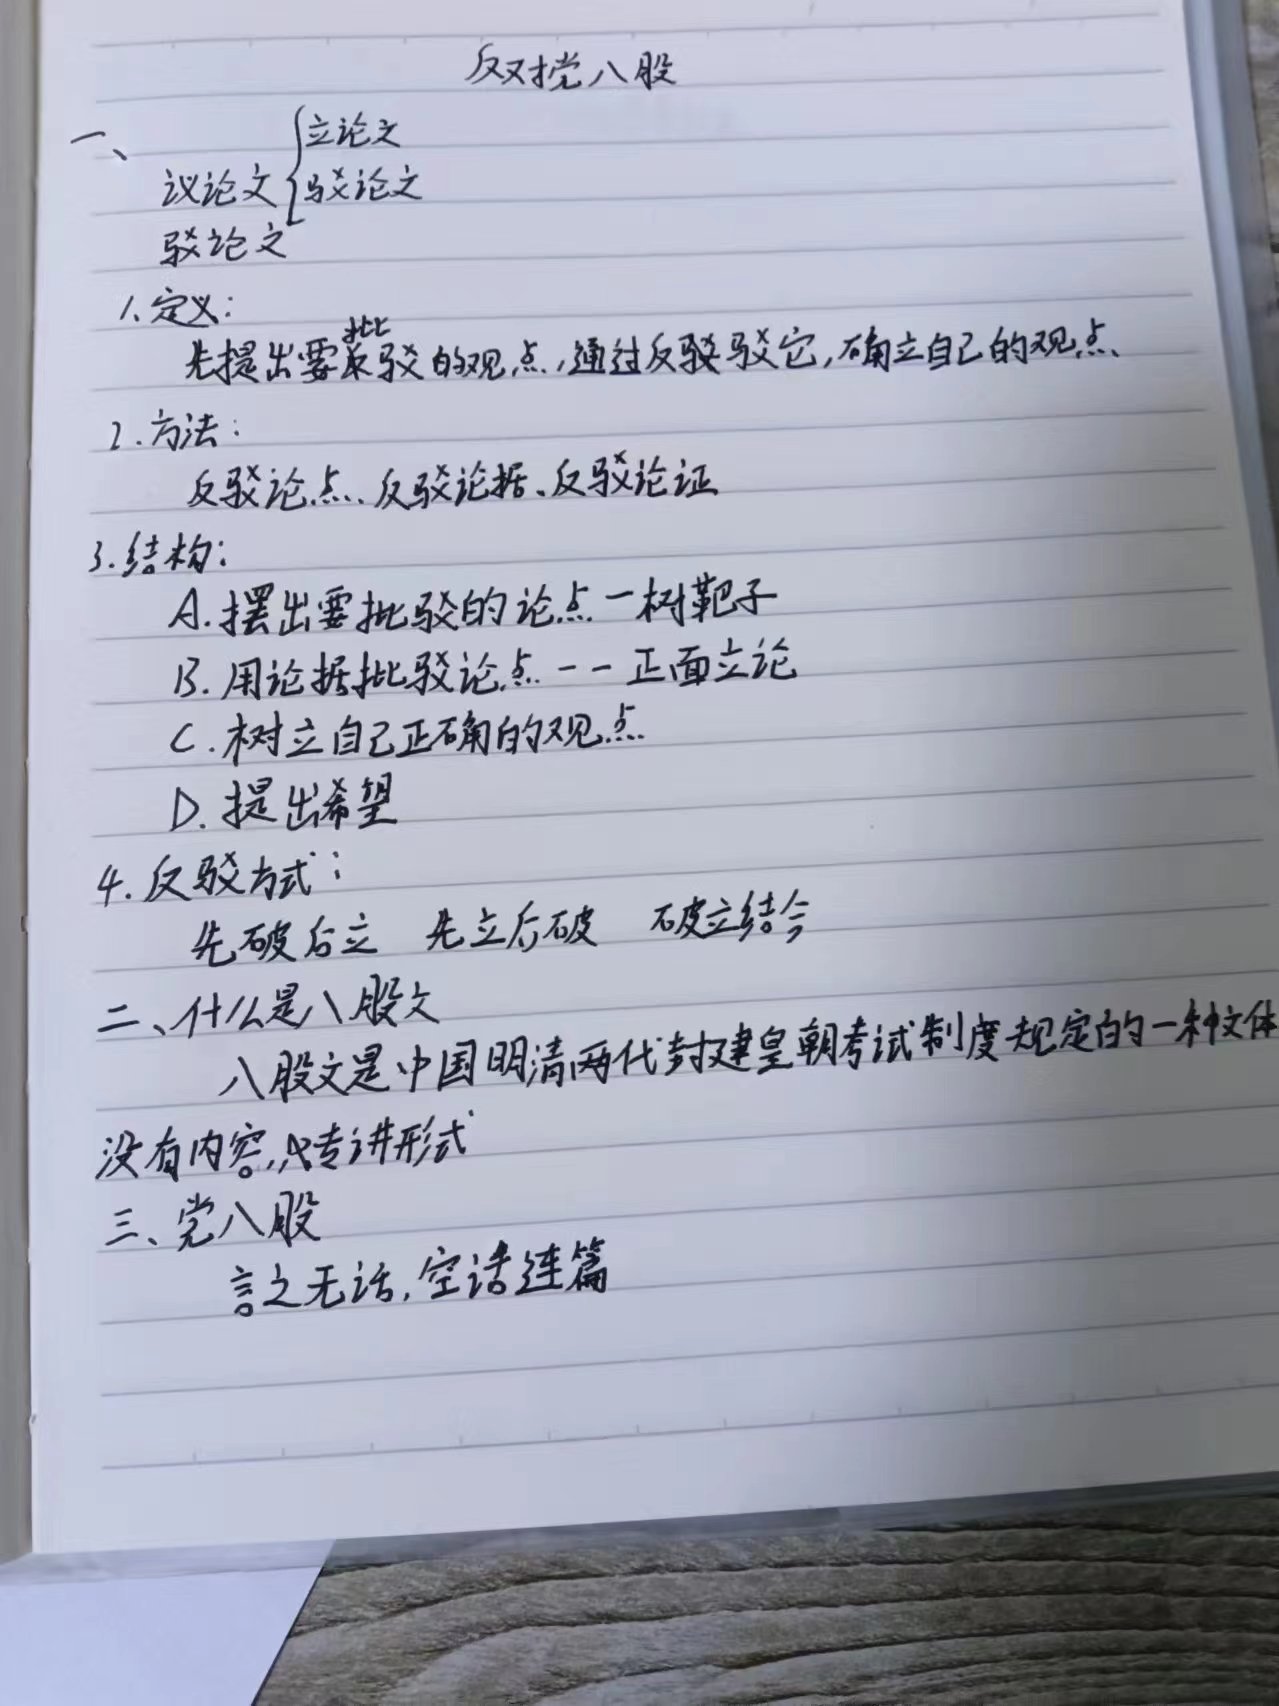 反对党八股
一、
立论文
议论文
驳论文
驳论文
1.定义:
批
先提出要反驳的观点,通过反驳驳它,确立自己的观点、
2.方法:
反驳论点、反驳论据、反驳论证
3.结构:
A.摆出要批驳的论点一树靶子
B.用论据批驳论点--正面立论
C.树立自己正确的观点
D.提出希望
4.反驳方式:
先破后立 先立后破 破立结合
二、什么是八股文
八股文是中国明清两代封建皇朝考试制度规定的一种文体
没有内容,专讲形式
三、党八股
言之无话,空话连篇